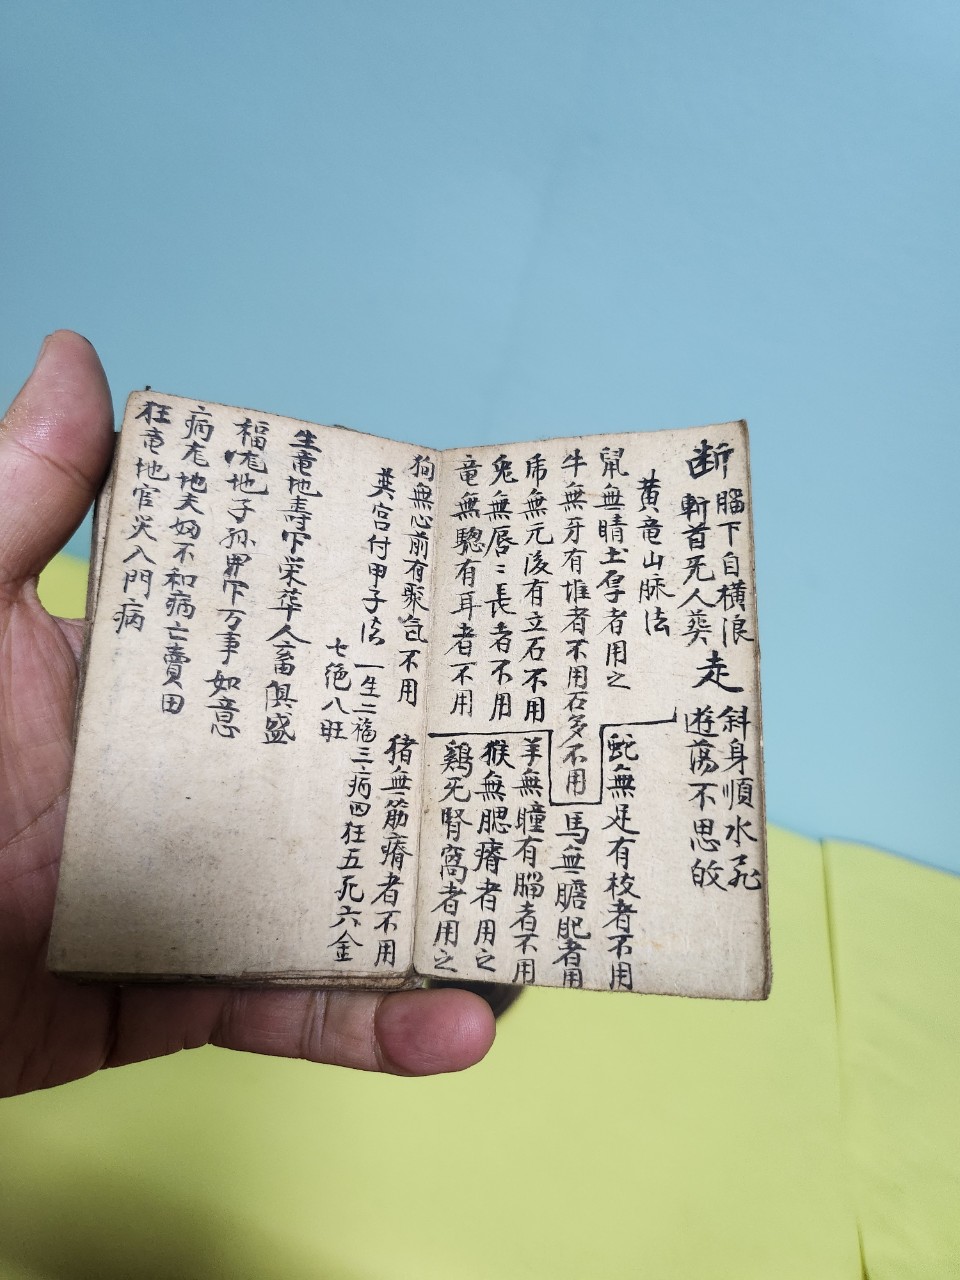 断 腦下自横浪
斬首死人葬
走 斜身順水飛
遊蕩不思皈
黄竜山脉法
鼠無睛土厚者用之
牛無牙有堆者不用石多不用
虎無元後有立石不用
兔無唇〻長者不用
竜無聰有耳者不用
蛇無足有校者不用
馬無膽肥者用
羊無瞳有腦者不用
猴無腮瘠者用之
鷄死腎窩者用之
狗無心前有聚氣不用
猪無筋瘠者不用
英宫付甲子法 一生二福三病四狂五死六金
七绝八旺
生竜地寿
荣华人畜俱盛
福竜地子孫
万事如意
病竜地夫妇不和病亡賣田
狂竜地官災入門病